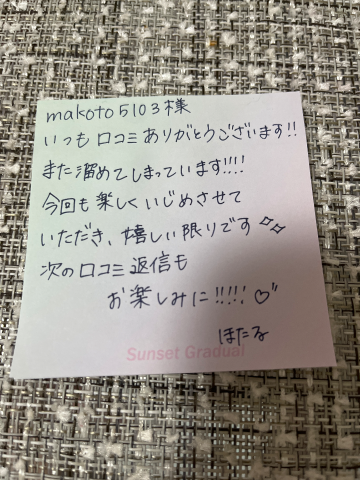 makoto5103様
いつも口コミありがとうございます!!
また溜めてしまっています!!!!
今回も楽しくいじめさせて
いただき、嬉しい限りです✧✧
次の口コミ返信も
お楽しみに!!!!!♡"
ほたる
Sunset Gradual